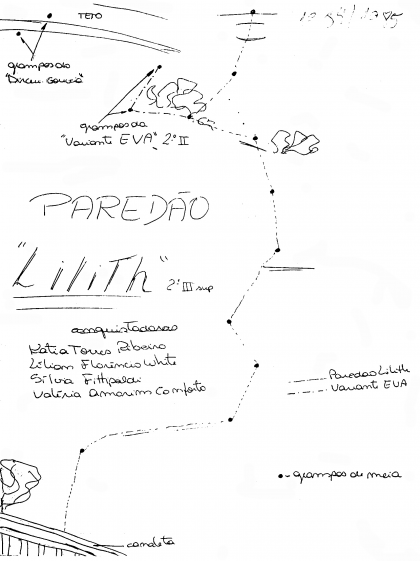 TETO
grampos do
grampos da
"Variante EVA" 2º II
PAREDÃO
"Lilith" 2º III sup
conquistadoras
Kátia Torres Ribeiro
Lilian Florêncio White
Silvia Fithpaldi
Valéria Amorim Conforto
Paredão Lilith
Variant EVA
grampos de meia
canaleta